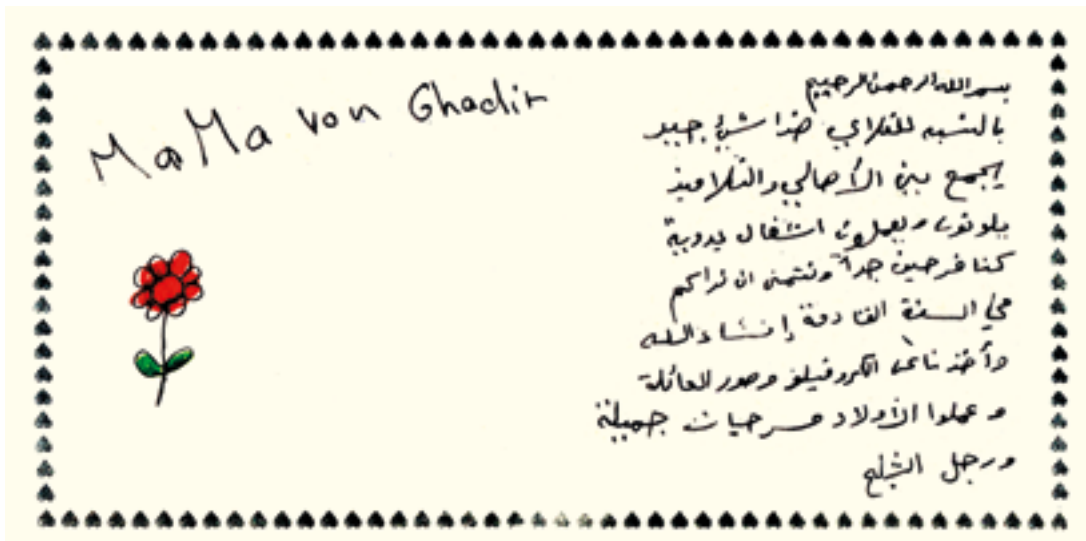 MaMa von Ghadir
بسم الله الرحمن الرحيم
بالنسبه للتلاي هذا شيئ جيد
يجمع بين الأهالي والتلاميذ
يلونون ويعملون اشغال يدوية
كنا فرحين جداً ونتمنى ان نراكم
في السنة القادمة إنشاء الله
وأخذنا وصور للعائلة
وعملوا الأولاد مسرحيات جميلة
ورجل الثلج